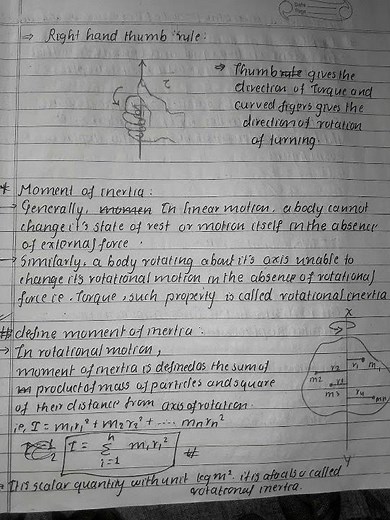 ⇒ Right hand thumb rule:
τ
→ Thumb rule gives the
direction of Torque and
curved figers gives the
direction of rotation
of turning.
* Moment of inertia:
→ Generally, momen In linear motion, a body cannot
change it's state of rest or motion itself in the absence
of external force.
→ Similarly, a body rotating about it's axis unable to
change it's rotational motion in the absence of rotational
force i.e. Torque, such property is called rotational inertia
# define moment of inertia:
→ In rotational motion,
moment of inertia is defined as the sum of
m product of mass of particles and square
of their distance from axis of rotation.
ie, I = m₁r₁² + m₂r₂² + .... mₙrₙ²
I = Σ mᵢrᵢ² #
n
i=1
X
m₂ r₂ r₁ m₁
m₃ r₃
rₙ mₙ
Y
→ It is scalar quantity with unit kgm². it is also called
rotational inertia.